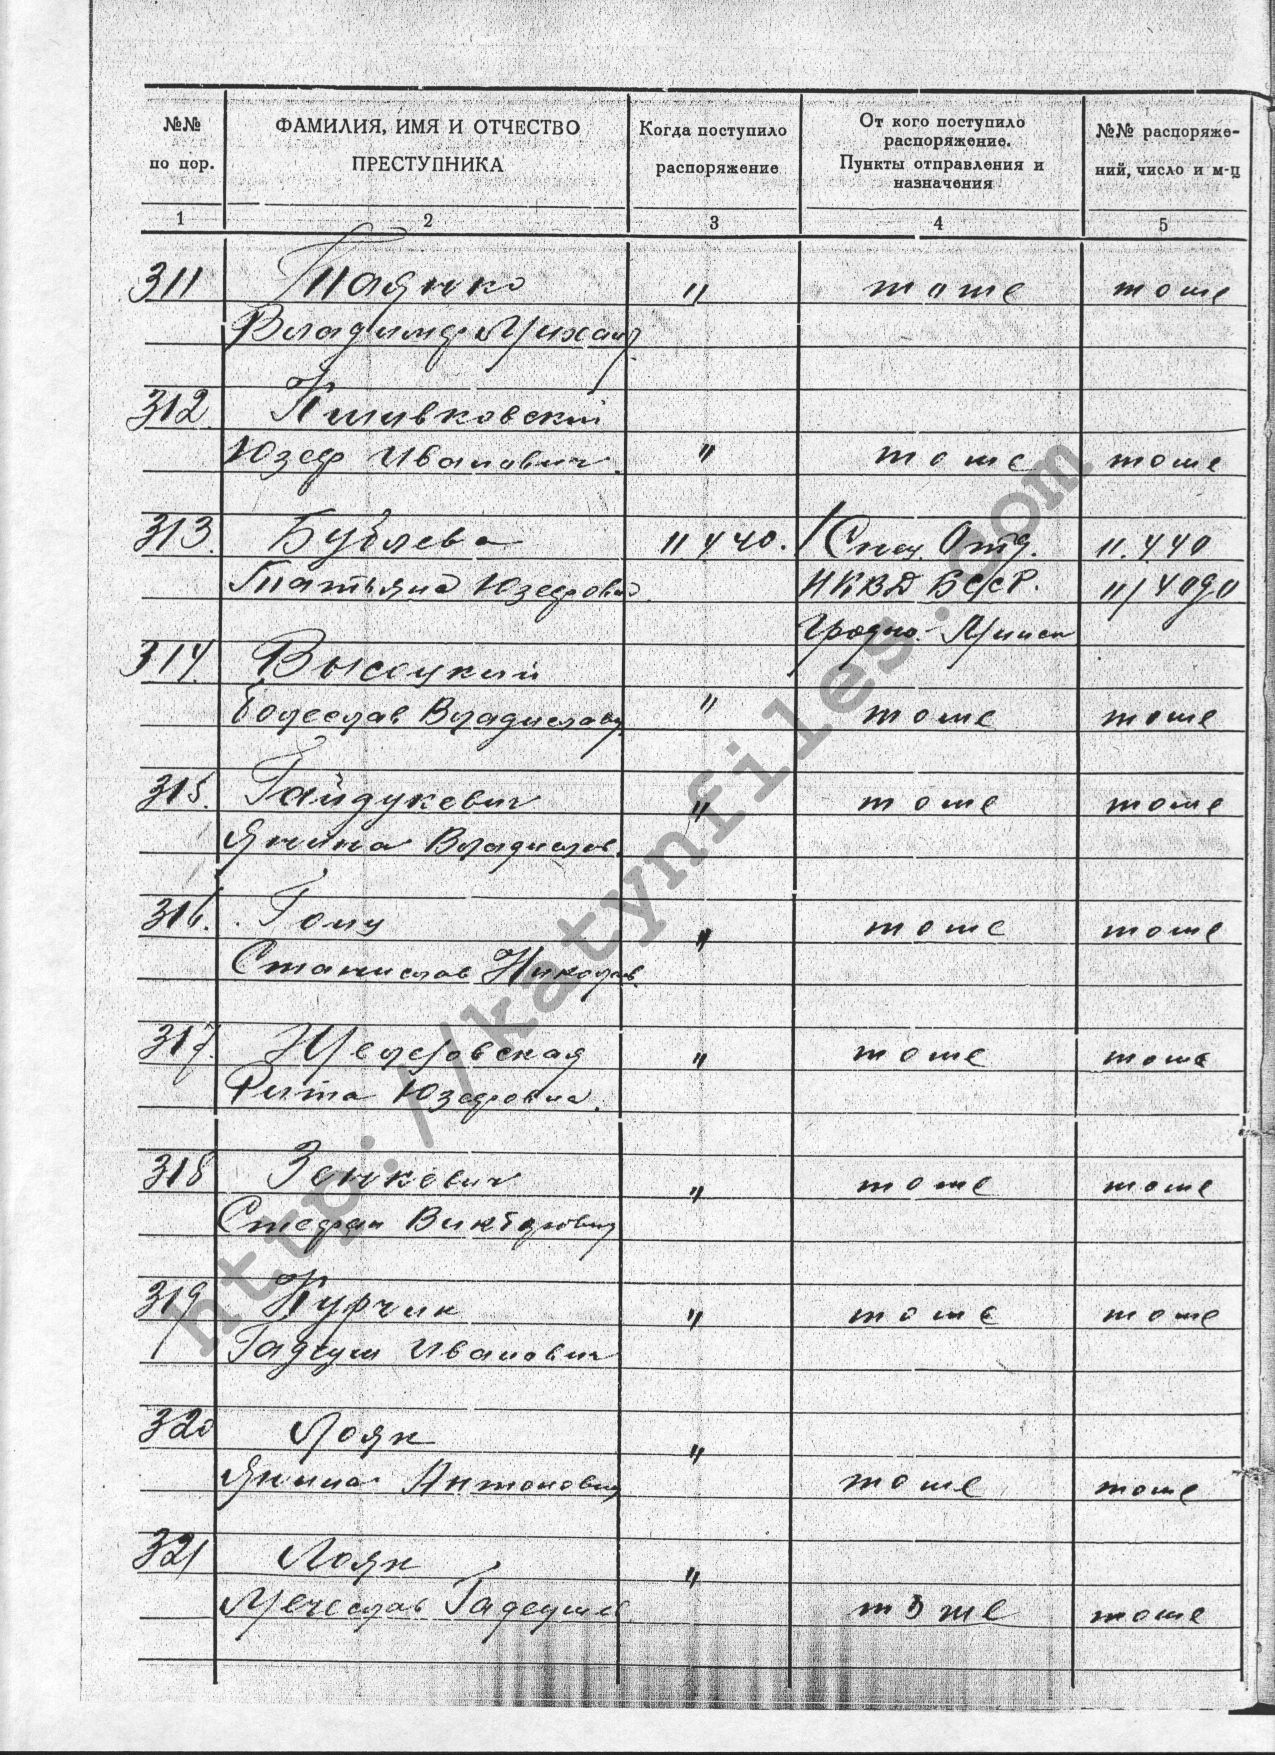 №№ по пор.
ФАМИЛИЯ, ИМЯ И ОТЧЕСТВО ПРЕСТУПНИКА
Когда поступило распоряжение
От кого поступило распоряжение. Пункты отправления и назначения
№№ распоряже-ний, число и м-ц
1 2 3 4 5
311 Таянко " тоже тоже
Владимир Михаил
312 " тоже тоже
Юзеф Иванович.
313. Бублева 11 4 40. Спец. Отд. 11. 4 40
Татьяна Юзефовна. НКВД БССР. 11/4 0920
Гродно - Минск
314. Высоцкий
Болеслав Владиславов " тоже тоже
315. Гайдукевич " тоже тоже
Янина Владислав.
316. Гому " тоже тоже
Станислав Николаев.
317. " тоже тоже
Рита Юзефовна.
318 Зенкевич " тоже тоже
Стефан Викторович
319 Курчик " тоже тоже
Тадеуш Иванович
320 Лояк "
Янина Антоновна тоже тоже
321 Лояк "
Мечеслав Тадеушев тоже тоже
http://katynfiles.com